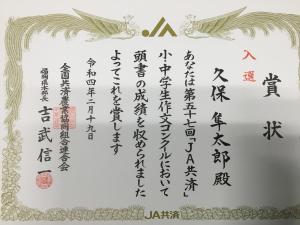 JA
賞状
入選
久保隼太郎殿
あなたは第五十七回「JA共済」
小・中学生作文コンクールにおいて
頭書の成績を収められました
よってこれを賞します
令和四年二月十九日
全国共済農業協同組合連合会
福岡県本部長 吉武信一
JA共済